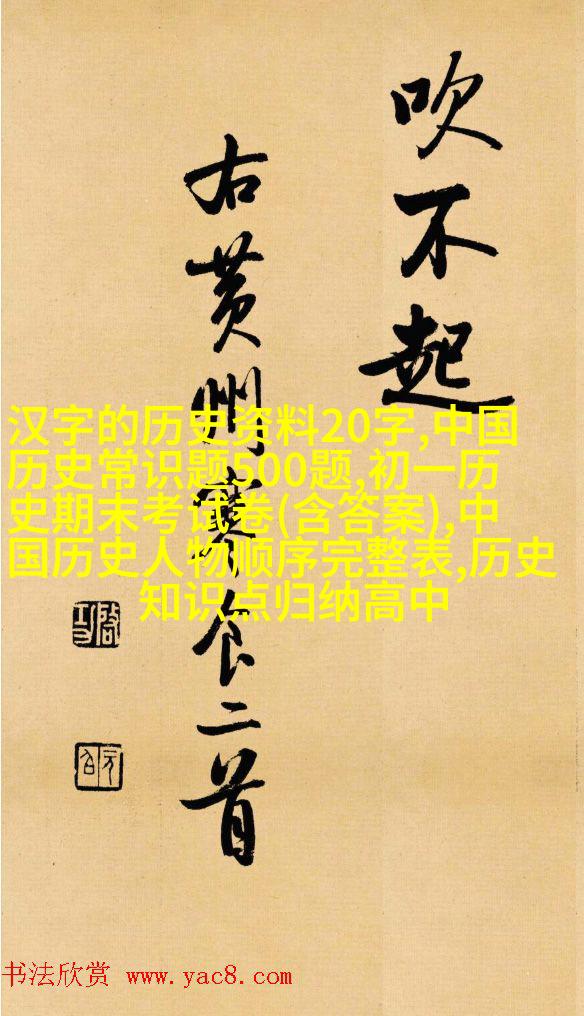 吹不起
右黄州寒食二首
汉字的历史资料20字,中国
历史常识题500题,初一历
史期末考试卷(含答案),中
国历史人物顺序完整表,历史
知识点归纳高中
启功
元白
书法欣赏 www.yac8.com